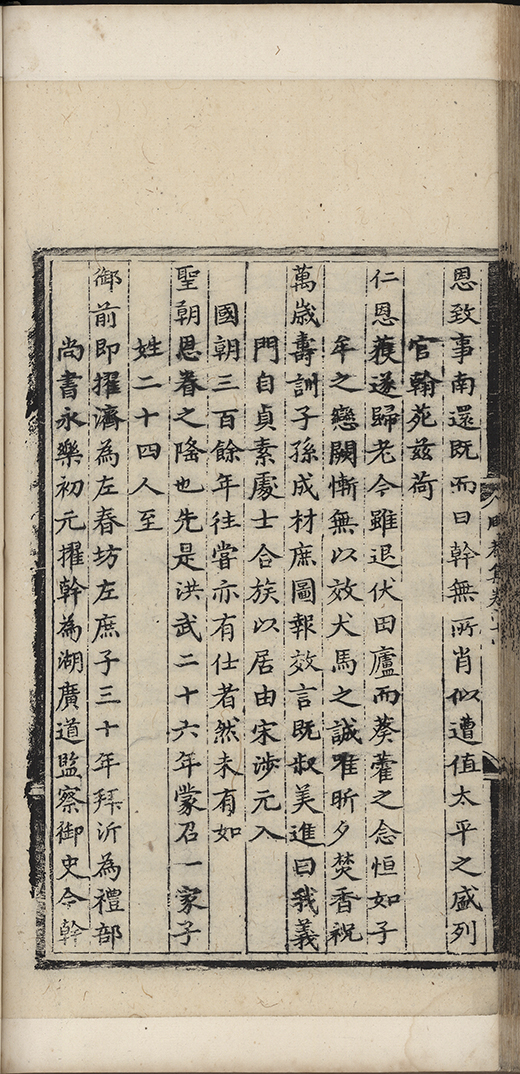 恩致事南還既而曰幹無所肖似遭值太平之盛列
官翰苑茲荷
仁恩獲遂歸老今雖退伏田廬而葵藿之念恒如子
牟之戀闕慚無以效犬馬之誠唯昕夕焚香祝
萬歲壽訓子孫成材庶圖報效言既叔美進曰我義
門自貞素處士合族以居由宋涉元入
國朝三百餘年往嘗亦有仕者然未有如
聖朝恩眷之隆也先是洪武二十六年蒙召一家子
姓二十四人至
御前即擢濟為左春坊左庶子三十年拜沂為禮部
尚書永樂初元擢幹為湖廣道監察御史今幹